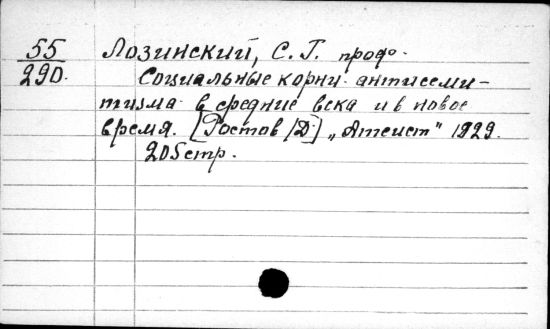 55 Лозинский, С. Г. проф.
290. Социальные корни антисеми-
тизма в средние века и в новое
время. [Ростов /Д.] „Атеист" 1929.
205 стр.